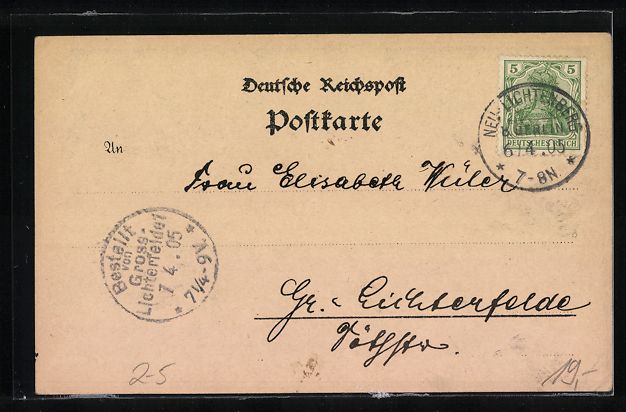 Deutsche Reichspost
Postkarte
5 5
DEUTSCHES REICH
NEU-LICHTENBERG
B. BERLIN
6/4.05
* 7-8N *
An
Frau Elisabeth
Bestellt
von
Gross-
Lichterfelde 1
7 4. 05
* 7¼-9V *
Gr.-Lichterfelde
2-5
19,-